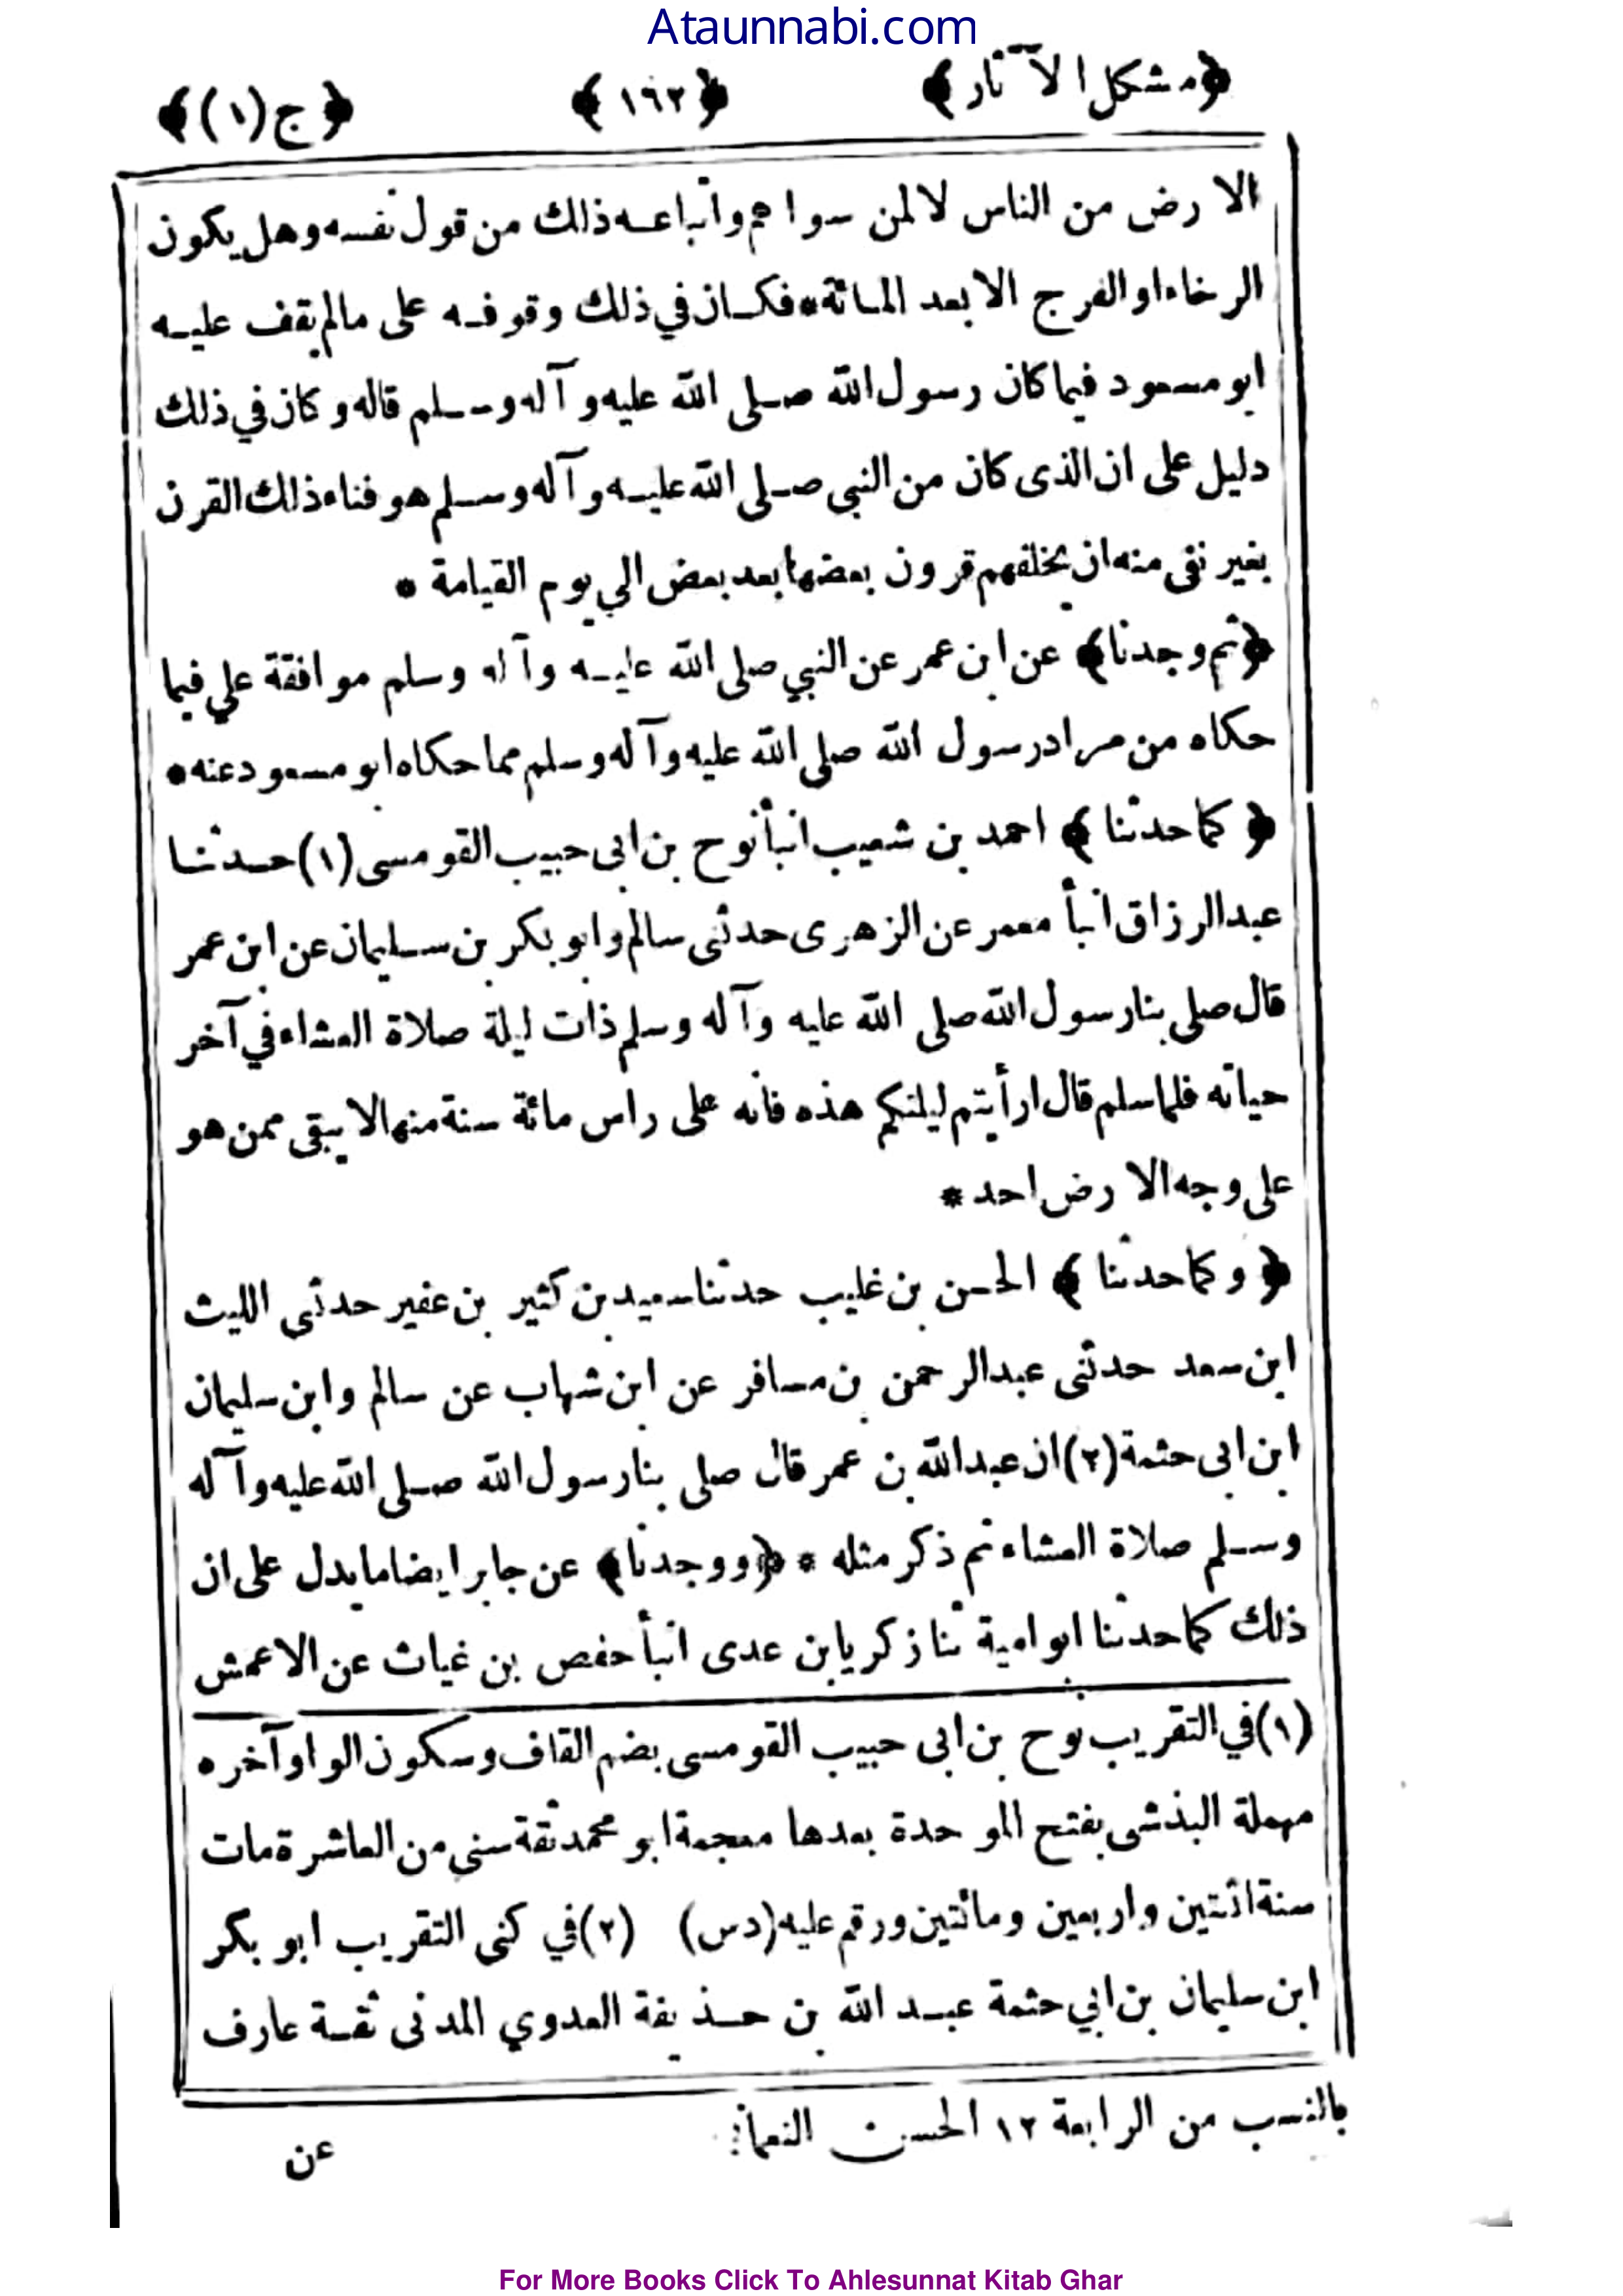 Ataunnabi.com
﴿مشكل الآثار﴾ ﴿١٦٢﴾ ﴿ج(١)﴾
الارض من الناس لالمن سواهم واتباعه ذلك من قول نفسه وهل يكون
الرخاء او الفرج الا بعد المائة * فكان في ذلك وقوفه على مالم يقف عليه
ابو مسعود فيما كان رسول الله صلى الله عليه وآله وسلم قاله وكان في ذلك
دليل على ان الذى كان من النبي صلى الله عليه وآله وسلم هو فناء ذلك القرن
بغير نفى منه ان يخلفهم قرون بعضها بعد بعض الي يوم القيامة *
﴿ثم وجدنا﴾ عن ابن عمر عن النبي صلى الله عليه وآله وسلم موافقة علي فيما
حكاه من مراد رسول الله صلى الله عليه وآله وسلم مما حكاه ابو مسعود عنه *
﴿كما حدثنا﴾ احمد بن شعيب انبأ نوح بن ابى حبيب القومسى (١) حدثنا
عبد الرزاق انبأ معمر عن الزهرى حدثنى سالم وابو بكر بن سليمان عن ابن عمر
قال صلى بنا رسول الله صلى الله عليه وآله وسلم ذات ليلة صلاة العشاء في آخر
حياته فلما سلم قال ارأيتم ليلتكم هذه فانه على راس مائة سنة منها لا يبقى ممن هو
على وجه الارض احد *
﴿وكما حدثنا﴾ الحسن بن غليب حدثنا سعيد بن كثير بن عفير حدثنى الليث
ابن سعد حدثنى عبد الرحمن بن مسافر عن ابن شهاب عن سالم وابن سليمان
ابن ابى حثمة (٢) ان عبد الله بن عمر قال صلى بنا رسول الله صلى الله عليه وآله
وسلم صلاة العشاء ثم ذكر مثله * ﴿ووجدنا﴾ عن جابر ايضا ما يدل على ان
ذلك كما حدثنا ابو امية ثنا زكريا بن عدى انبأ حفص بن غياث عن الاعمش
(١) في التقريب نوح بن ابى حبيب القومسى بضم القاف وسكون الواو آخره
مهملة البذشى بفتح الموحدة بعدها معجمة ابو محمد ثقة سنى من العاشرة مات
سنة اثنتين واربعين ومائتين ورقم عليه (دس) (٢) في كنى التقريب ابو بكر
ابن سليمان بن ابي حثمة عبد الله بن حذيفة العدوي المدنى ثقة عارف
بالنسب من الرابعة ١٢ الحسن النعمانى
عن
For More Books Click To Ahlesunnat Kitab Ghar